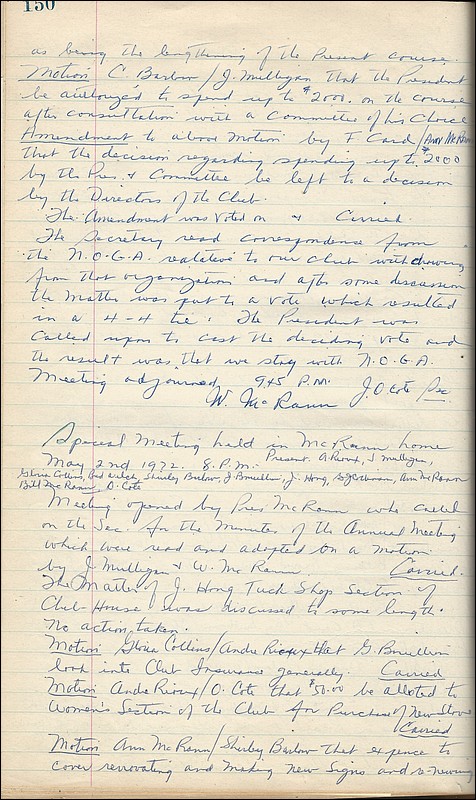 150
as being the lengthening of the Present course.
Motion C. Barlow / J. Mulligan that the President
be authorized to spend up to $2000. on the course
after consultation with a Committee of his Choice
Amendment to above Motion by F Card / Ann McRann
that the decision regarding spending up to $2000
by the Pres. & Committee be left to a decision
by the Directors of the Club.
The Amendment was voted on & Carried.
The Secretary read correspondence from
the N.O.G.A. realative to our Club withdrawing
from that organization and after some discussion
the matter was put to a vote which resulted
in a 4-4 tie. The President was
called upon to cast the deciding vote and
the result was that we stay with N.O.G.A.
Meeting adjourned 9.45 P.M. J.O. Cote Sec.
W. McRann
Special Meeting held in McRann home
May 2nd 1972. 8. P.M. Present. A. Rioux, J. Mulligan,
Gloria Collins, Shirley Barlow, J. Hong, Ann McRann
Bill McRann, O. Cote
Meeting opened by Pres McRann who called
on the Sec. for the Minutes of the Annual Meeting
which were read and adopted on a Motion
by J. Mulligan & W. McRann. Carried.
The Matter of J. Hong Tuck Shop Section of
Club House was discussed to some length.
No action taken.
Motion Gloria Collins / Andre Rioux that G. Brucellin
look into Club Insurance generally. Carried
Motion Andre Rioux / O. Cote that $50.00 be alloted to
Women's Section of the Club for Purchase of New Stove
Carried
Motion Ann McRann / Shirley Barlow that expence to
cover renovating and making new Signs and re-newing